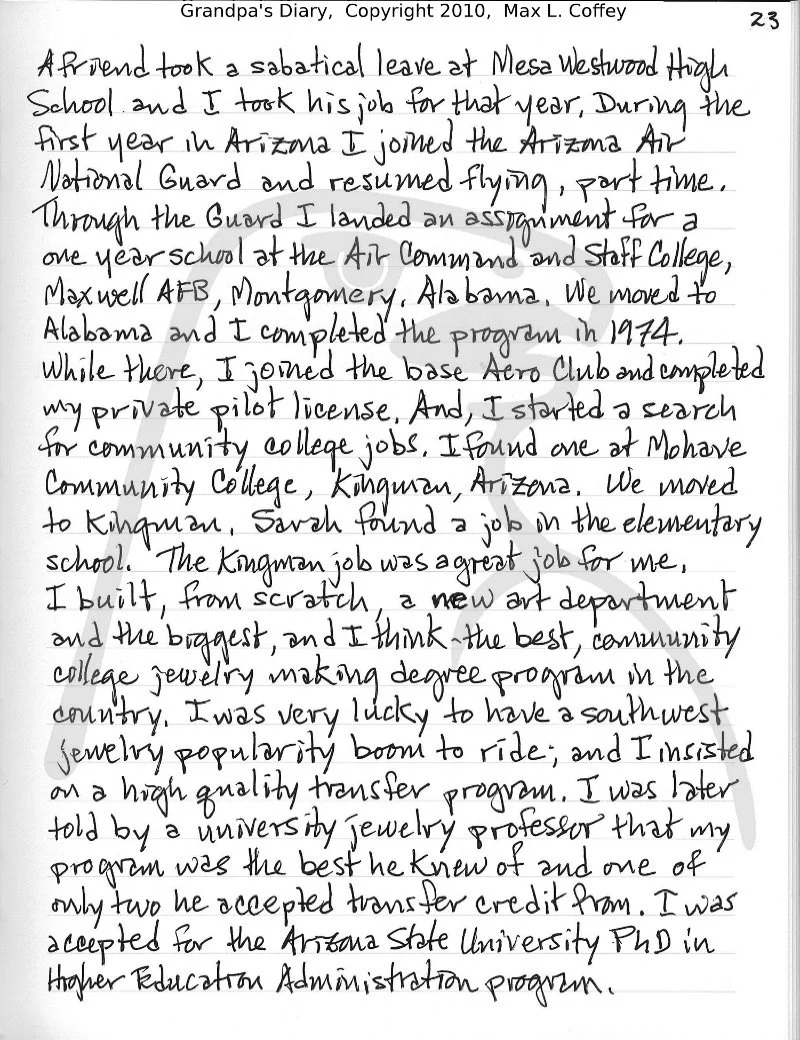 Grandpa's Diary, Copyright 2010, Max L. Coffey
23
A friend took a sabatical leave at Mesa Westwood High
School and I took his job for that year. During the
first year in Arizona I joined the Arizona Air
National Guard and resumed flying, part time.
Through the Guard I landed an assignment for a
one year school at the Air Command and Staff College,
Maxwell AFB, Montgomery, Alabama. We moved to
Alabama and I completed the program in 1974.
While there, I joined the base Aero Club and completed
my private pilot license. And, I started a search
for community college jobs. I found one at Mohave
Community College, Kingman, Arizona. We moved
to Kingman. Sarah found a job in the elementary
school. The Kingman job was a great job for me.
I built, from scratch, a new art department
and the biggest, and I think the best, community
college jewelry making degree program in the
country. I was very lucky to have a southwest
jewelry popularity boom to ride; and I insisted
on a high quality transfer program. I was later
told by a university jewelry professor that my
program was the best he knew of and one of
only two he accepted transfer credit from. I was
accepted for the Arizona State University PhD in
Higher Education Administration program.